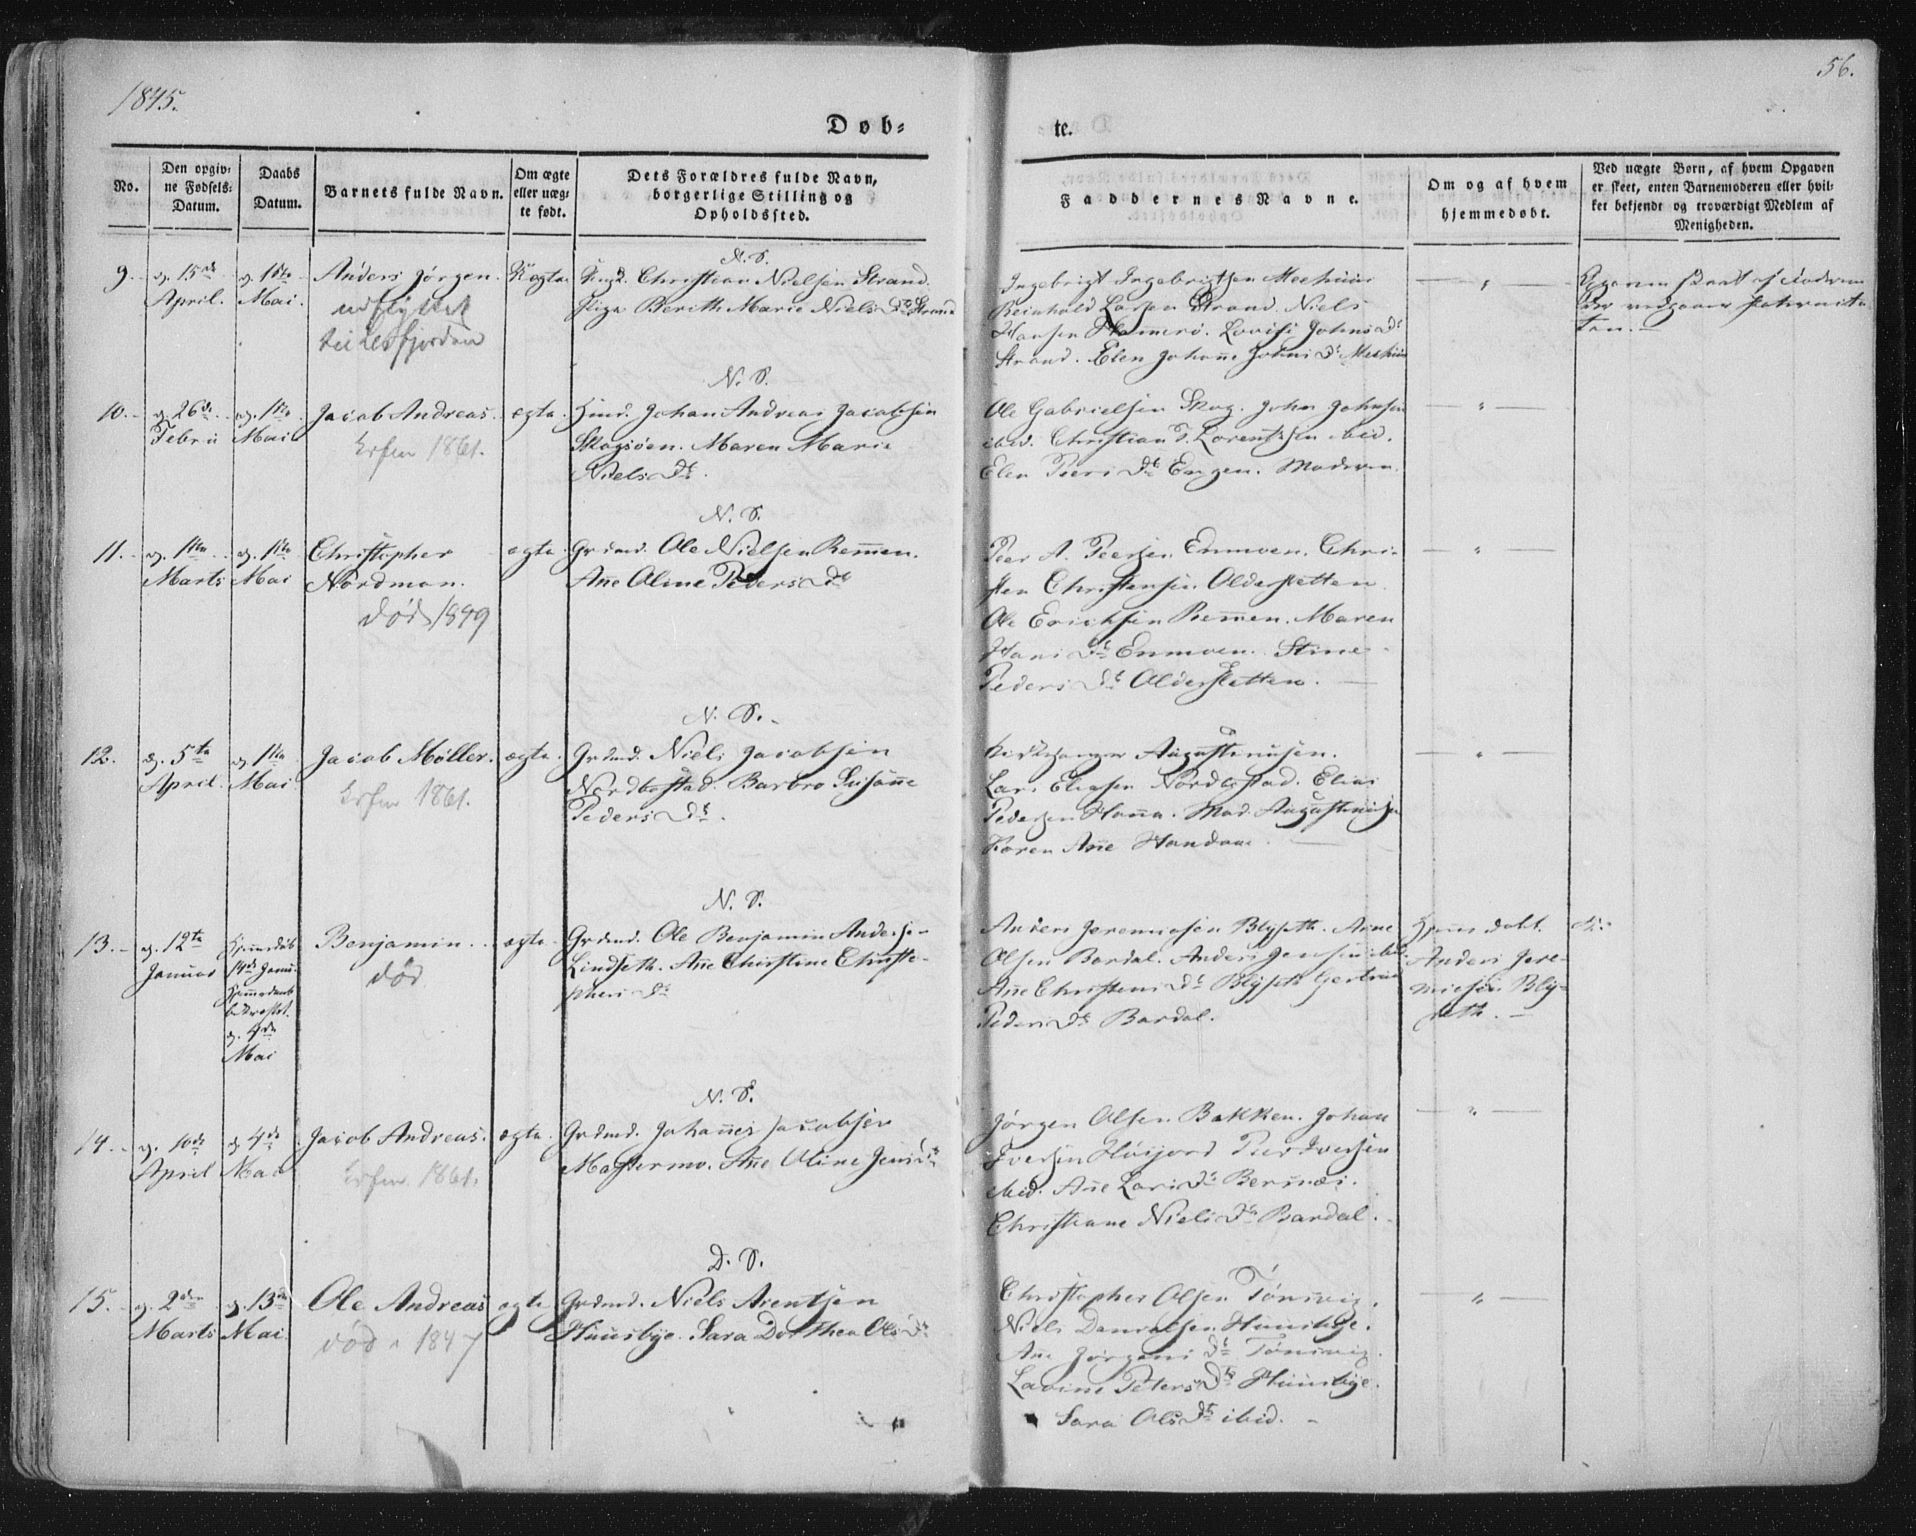 1845.
56.
Døb=
te.
No.
Den opgiv=
ne Fødsels=
Datum.
Daabs
Datum.
Barnets fulde Navn.
Om ægte
eller uæg=
te født.
Dets Forældres fulde Navn,
borgerlige Stilling og
Opholdssted.
Faddernes Navne.
Om og af hvem
hjemmedøbt.
Ved uægte Børn, af hvem Opgaven
er skeet, enten Barnemoderen eller hvil=
ket bekjendt og troværdigt Medlem af
Menigheden.
N. S.
9. d. 15de
April.
d. 1ste
Mai.
Anders Jørgen.
udflyttet
Uægte.
Christian Nielsen Strand.
Pige Berith Marie Niels Dr Strand
Ingebrigt Ingebrigtsen
Reinhold Larsen Strand. Niels
Hansen Lovise Johns Dr
Strand. Elen Johanne Johns Dr
Opgaven skeet af Moderen
N. S.
10. d. 26de
Febru
d. 1ste
Mai
Jacob Andreas.
1861.
ægte.
Huusm. Johan Andreas Jacobsen
Skagsøen. Maren Marie
Niels Dr.
Ole Gabrielsen Skog. John Johnsen
ibid. Christian Lorentzsen ibid.
Elen Peers Dr Engen. Moderen.
N. S.
11. d. 11te
Marts
d. 1ste
Mai
Christopher
Nordman.
død 1849
ægte.
Grdmd. Ole Nielsen Remmen.
Ane Oline Peders Dr
Peer A. Peersen Enmoen. Chri-
sten Christensen Aldersletten
Ole Erichsen Remmen. Maren
Hans Dr Enmoen. Stine
Peders Dr Aldersletten.
N. S.
12. d. 5te
April.
d. 1ste
Mai.
Jacob Møller.
1861.
ægte.
Grdmd. Niels Jacobsen
Nordbostad. Barbro Susanne
Peders Dr.
Kirkesanger Augustinusen.
Lars Eliasen Nordbostad. Elias
Pedersen Mad. Augustinusen
Karen Ane
N. S.
13. d. 12te
Januar
Hjemmedøb
14de Janu.
bekræftet.
d. 4de
Mai
Benjamin.
død
ægte.
Grdmd. Ole Benjamin Anderse-
Lindseth. Ane Christine Christo-
phers Dr
Anders Jeremiasen Blyseth. Arne
Olsen Bardal. Anders Jensen ibid.
Ane Christens Dr Blyseth Gertrud
Peders Dr Bardal.
Hjemmedøbt.
Anders Jere-
miasen Bly-
seth.
N. S.
14. d. 10de
April
d. 4de
Mai
Jacob Andreas.
1861.
ægte.
Grdmd. Johannes Jacobsen
Mastermo. Ane Oline Jens Dr
Jørgen Olsen Bakken. Johan
Iversen Peer Iversen
ibid. Ane Lars Dr
Christiane Niels Dr Bardal.
D. S.
15. d. 2den
Marts
d. 13de
Mai.
Ole Andreas
død 1847
ægte
Grdmd. Niels Arentsen
Huusbye. Sara Dorthea Ols Dr
Christopher Olsen Tønsvig.
Niels Danielsen Huusbye.
Ane Jørgens Dr Tønsvig.
Lavine Peters Dr Huusbye.
Sara Ols Dr ibid.